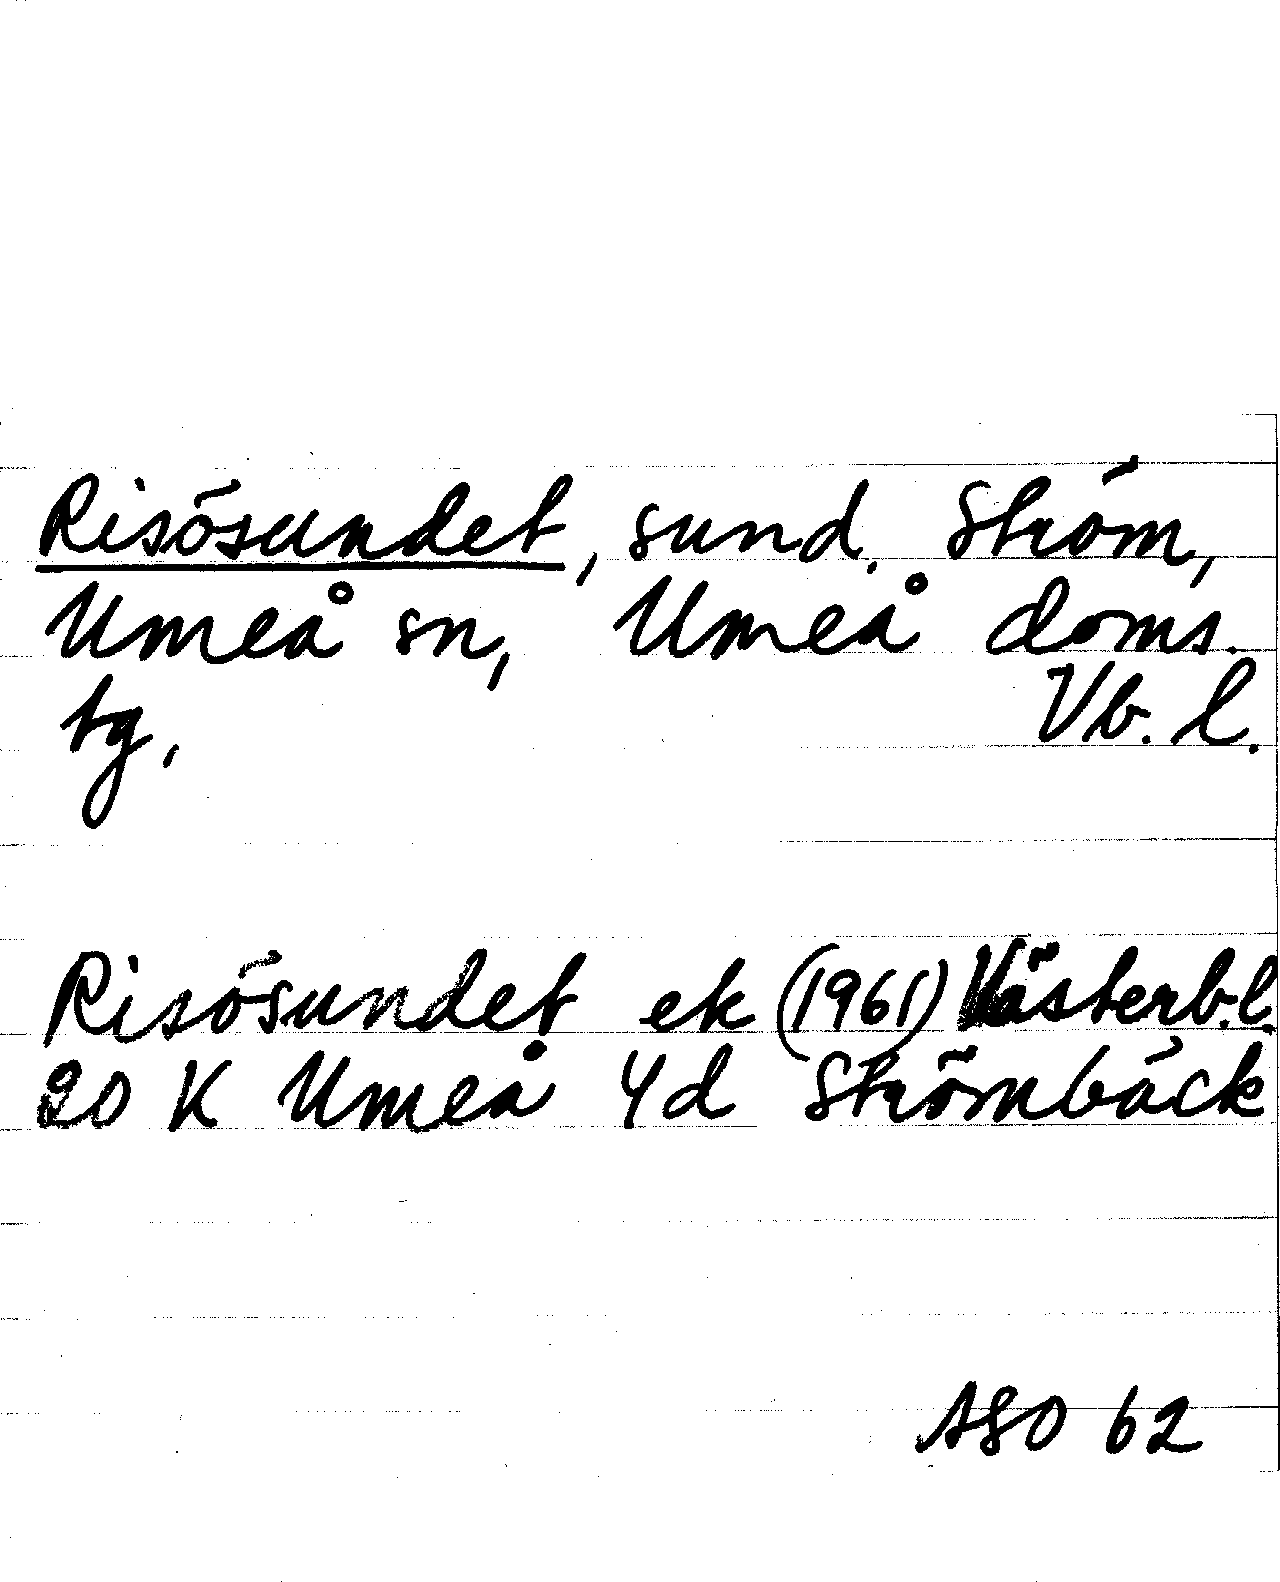 Risösundet, sund. Ström,
Umeå sn, Umeå doms.
tg, Vb. l.
Risösundet ek (1961) Västerb.l.
20 K Umeå 4d Strömbäck
ASO 62